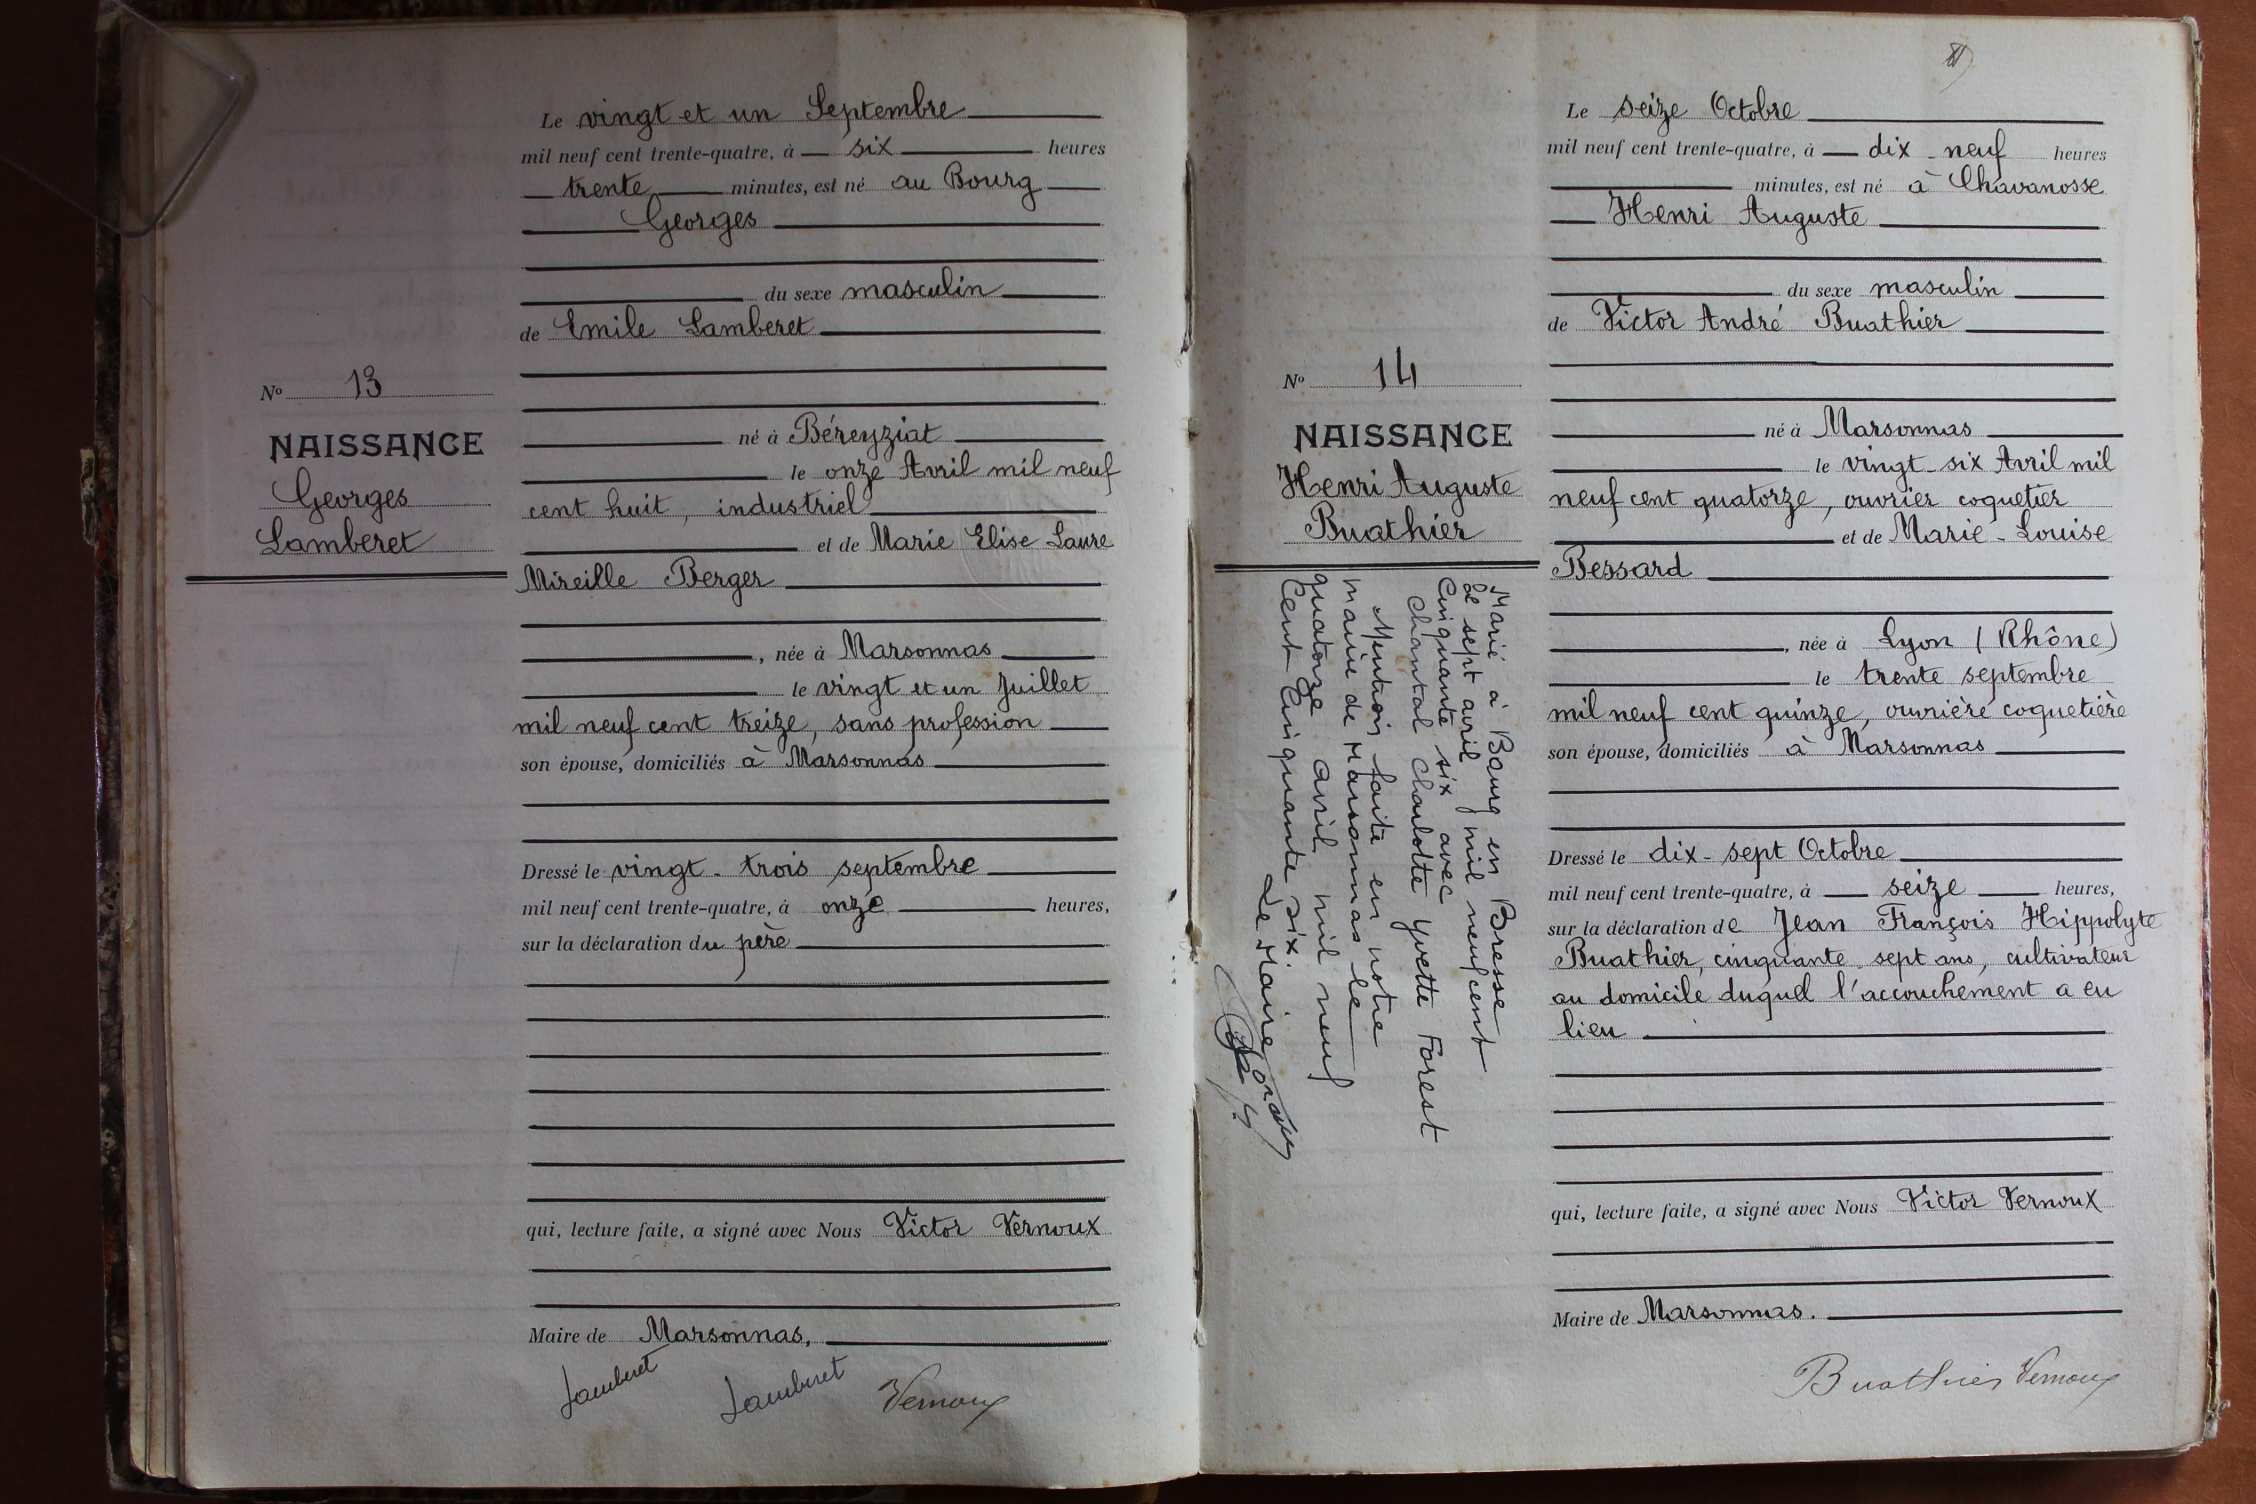 Le vingt et un Septembre
mil neuf cent trente-quatre, à six heures
trente minutes, est né au Bourg
Georges
du sexe masculin
de Emile Lamberet
né à Béreyziat
le onze Avril mil neuf
cent huit, industriel
et de Marie Elise Laure
Mireille Berger
, née à Marsonnas
le vingt et un Juillet
mil neuf cent treize, sans profession
son épouse, domiciliés à Marsonnas
Dressé le vingt-trois septembre
mil neuf cent trente-quatre, à onze heures,
sur la déclaration du père
qui, lecture faite, a signé avec Nous Victor Vernoux
Maire de Marsonnas,
Lamberet Lamberet Vernoux
No 13
NAISSANCE
Georges
Lamberet
Le seize Octobre
mil neuf cent trente-quatre, à dix-neuf heures
minutes, est né à Chavanosse
Henri Auguste
du sexe masculin
de Victor André Buathier
né à Marsonnas
le vingt-six Avril mil
neuf cent quatorze, ouvrier coquetier
et de Marie-Louise
Bessard
, née à Lyon (Rhône)
le trente septembre
mil neuf cent quinze, ouvrière coquetière
son épouse, domiciliés à Marsonnas
Dressé le dix-sept Octobre
mil neuf cent trente-quatre, à seize heures,
sur la déclaration de Jean François Hippolyte
Buathier, cinquante-sept ans, cultivateur
au domicile duquel l'accouchement a eu
lieu
qui, lecture faite, a signé avec Nous Victor Vernoux
Maire de Marsonnas.
Buathier Vernoux
No 14
NAISSANCE
Henri Auguste
Buathier
Marié à Bourg en Bresse
le sept avril mil neuf cent
Cinquante six avec
Chantal Charlotte Yvette Forest
Mention faite en notre
mairie de Marsonnas le
quatorze avril mil neuf
Cent Cinquante six.
Le Maire